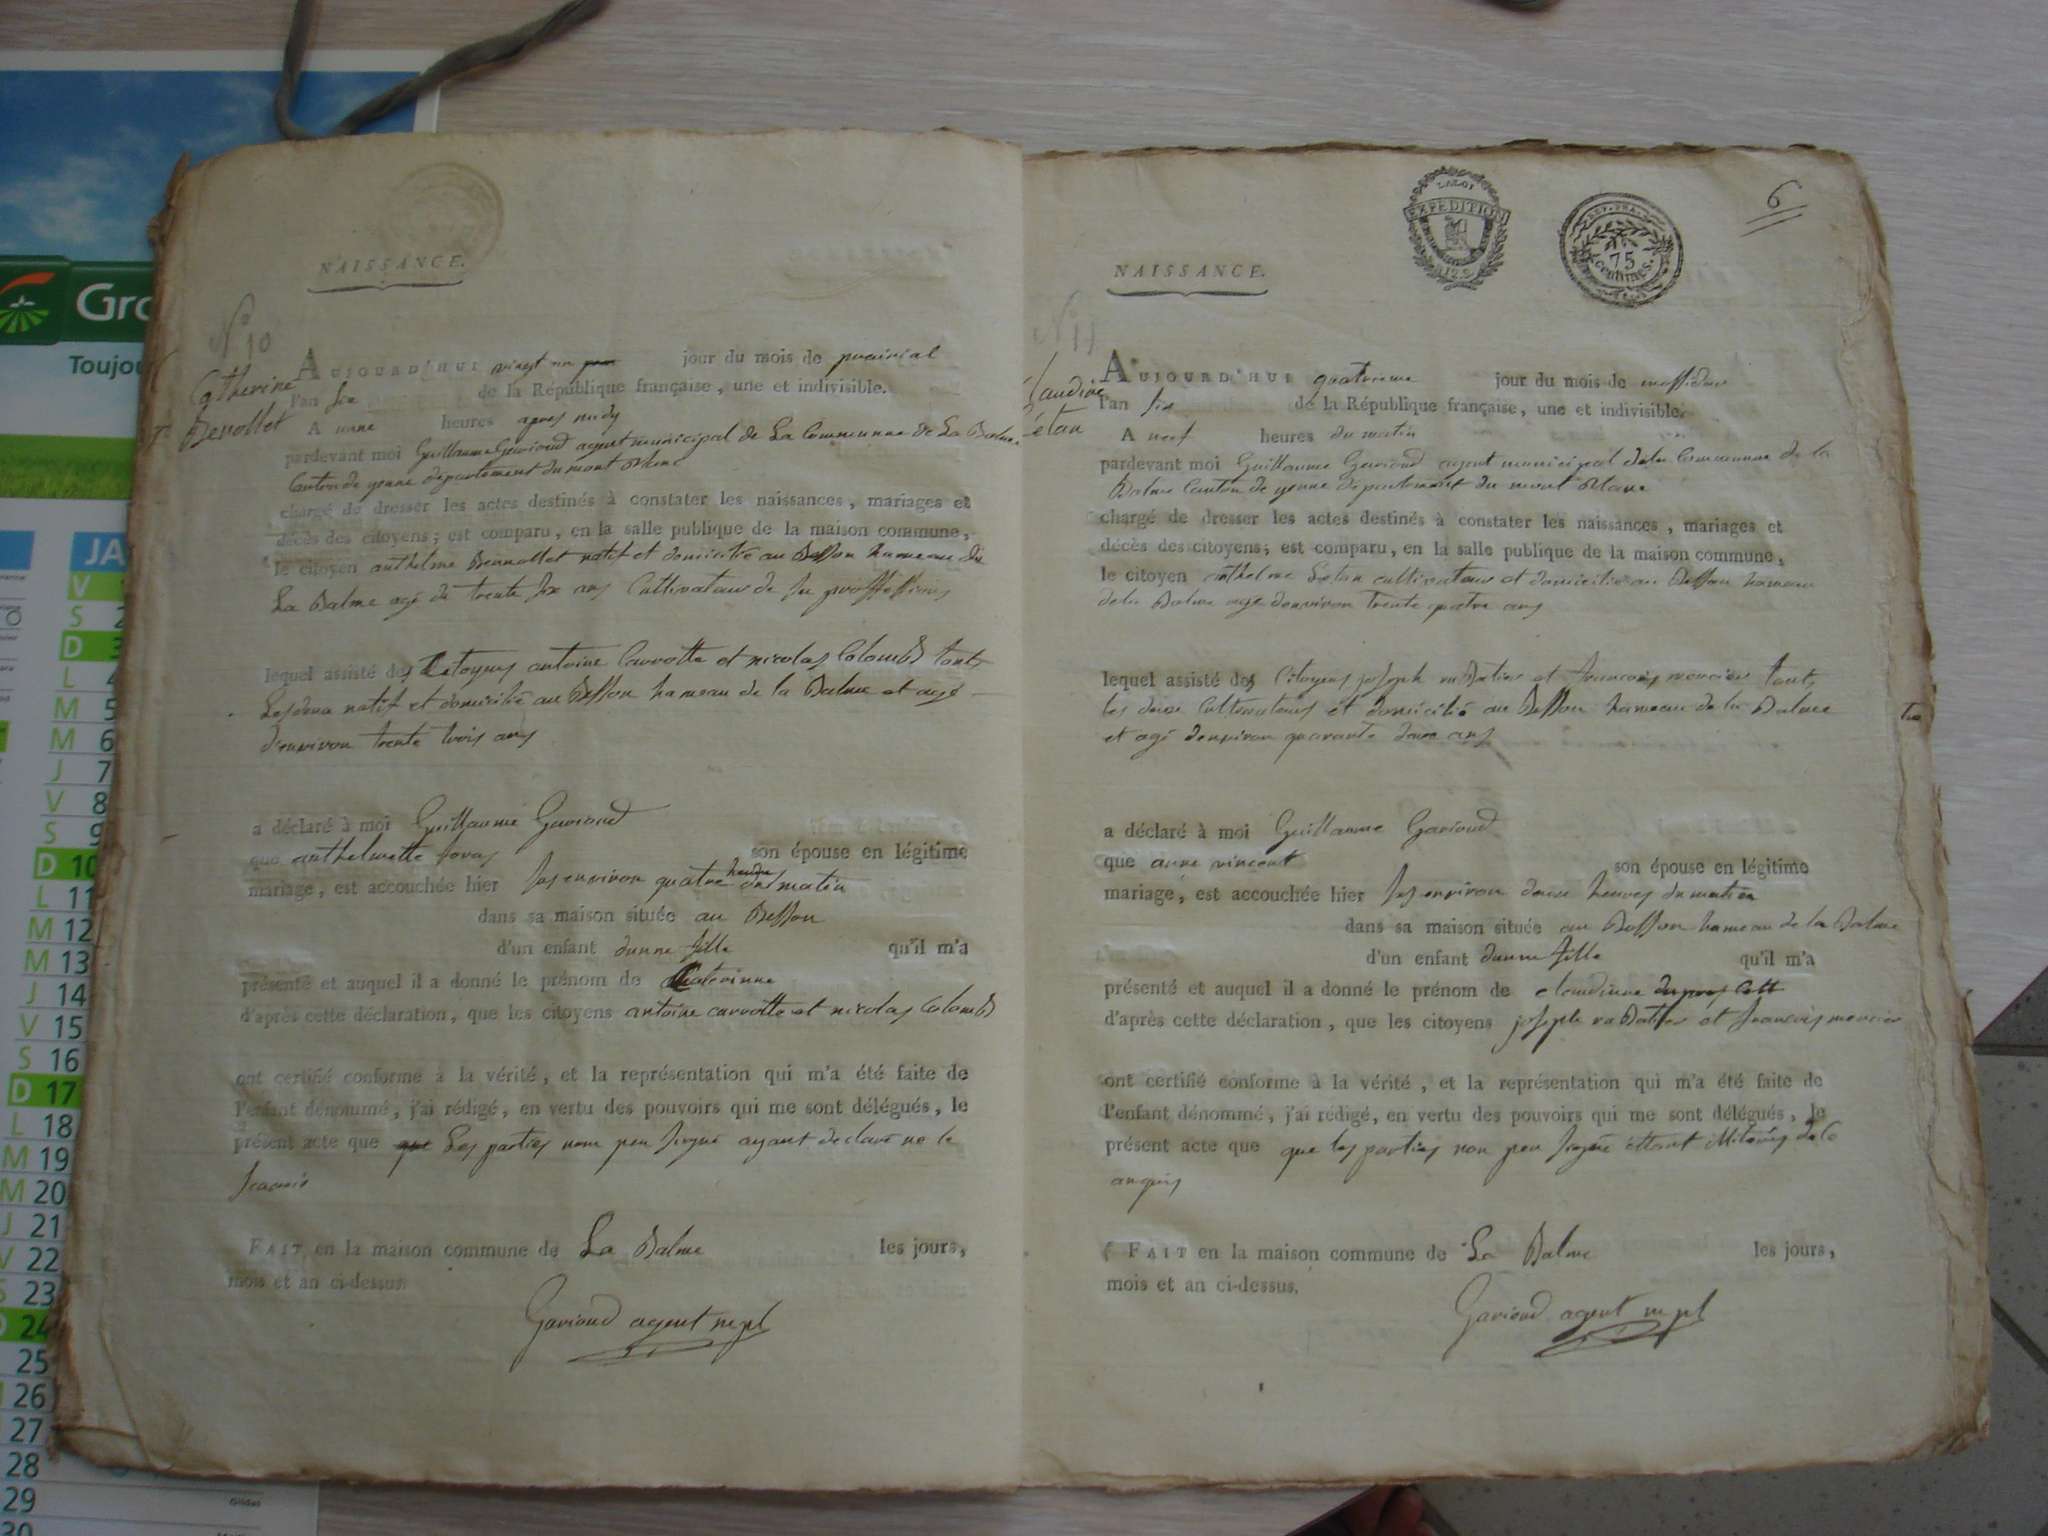 NAISSANCE.
N° 10
Catherine
Berollet
AUJOURD'HUI vingt un jour du mois de prairial
l'an six de la République française, une et indivisible.
A une heures apres midy
pardevant moi Guillaume Gavioud agent municipal de La Commune de La Balme
Canton de yenne departement du mont Blanc
chargé de dresser les actes destinés à constater les naissances, mariages et
décès des citoyens; est comparu, en la salle publique de la maison commune,
le citoyen anthelme Berrollet natif et domicilié au Besson hameau de
La Balme agé de trente six ans Cultivateur de sa proffession
lequel assisté des Citoyens antoine Carrotte et nicolas Colomb touts
Les deux natif et domicilié au Besson hameau de la Balme et agé
d'environ trente trois ans
a déclaré à moi Guillaume Gavioud
que anthelmette son épouse en légitime
mariage, est accouchée hier sus environ quatre heures du matin
dans sa maison située au Besson
d'un enfant dunne fille qu'il m'a
présenté et auquel il a donné le prénom de Caterinne
d'après cette déclaration, que les citoyens antoine carrotte et nicolas Colomb
ont certifié conforme à la vérité, et la représentation qui m'a été faite de
l'enfant dénommé, j'ai rédigé, en vertu des pouvoirs qui me sont délégués, le
présent acte que que Les parties nom peu signé ayant declaré ne le
scavoir
FAIT en la maison commune de La Balme les jours,
mois et an ci-dessus.
Gavioud agent mpl
LA LOI
EXPEDITION
REP. FRA.
75
centimes.
6
NAISSANCE.
N° 11
Claudine
Létan
AUJOURD'HUI quatrieme jour du mois de messidor
l'an six de la République française, une et indivisible.
A neuf heures du matin
pardevant moi Guillaume Gavioud agent municipal dela Commune de la
Balme Canton de yenne departement du mont Blanc
chargé de dresser les actes destinés à constater les naissances, mariages et
décès des citoyens; est comparu, en la salle publique de la maison commune,
le citoyen anthelme Letan cultivateur et domicilié au Besson hameau
dela Balme agé denviron trente quatre ans
lequel assisté des Citoyens joseph rubatier et francois mercier touts
les deux Cultivateurs et domicilié au Besson hameau de la Balme
et agé denviron quarante deux ans
a déclaré à moi Guillaume Gavioud
que anne vincent son épouse en légitime
mariage, est accouchée hier sus environ deux heures du matin
dans sa maison située au Besson hameau de la Balme
d'un enfant dunne fille qu'il m'a
présenté et auquel il a donné le prénom de claudinne
d'après cette déclaration, que les citoyens joseph rubatier et francois mercier
ont certifié conforme à la vérité, et la représentation qui m'a été faite de
l'enfant dénommé, j'ai rédigé, en vertu des pouvoirs qui me sont délégués, le
présent acte que que les parties non peu signé ettant illiterés de ce
anquis
FAIT en la maison commune de La Balme les jours,
mois et an ci-dessus.
Gavioud agent mpl
Gro
Toujou
JA
V
S 2
D 3
L 4
M 5
M 6
J 7
V 8
S 9
D 10
L 11
M 12
M 13
J 14
V 15
S 16
D 17
L 18
M 19
M 20
J 21
V 22
S 23
24
25
26
27
28
29
30
Gildas